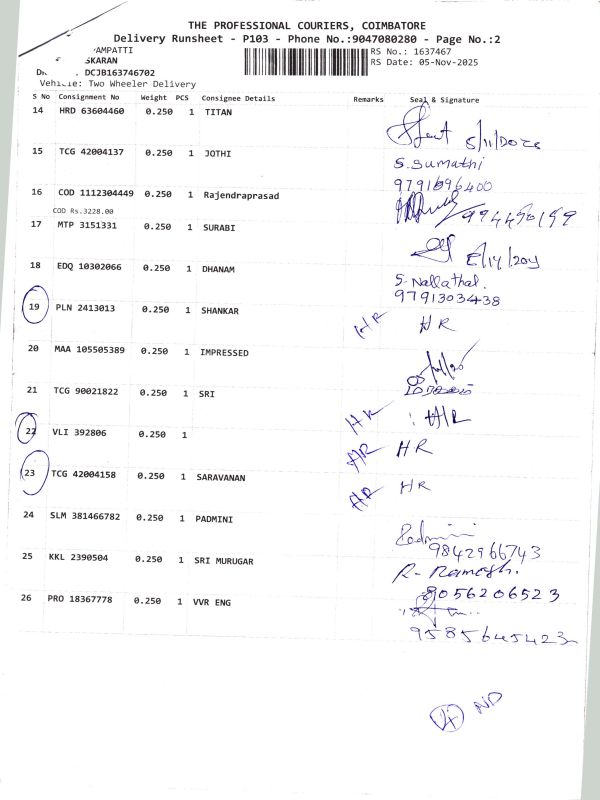 THE PROFESSIONAL COURIERS, COIMBATORE
Delivery Runsheet - P103 - Phone No.:9047080280 - Page No.:2
AMPATTI
RS No.: 1637467
SKARAN
RS Date: 05-Nov-2025
DCJB163746702
Vehicle: Two Wheeler Delivery
S No Consignment No Weight PCS Consignee Details Remarks Seal & Signature
14 HRD 63604460 0.250 1 TITAN
15 TCG 42004137 0.250 1 JOTHI S. Sumathi
9791696400
16 COD 1112304449 0.250 1 Rajendraprasad
COD Rs.3228.00
17 MTP 3151331 0.250 1 SURABI
18 EDQ 10302066 0.250 1 DHANAM S. Nallathal.
9791303438
19 PLN 2413013 0.250 1 SHANKAR HR HR
20 MAA 105505389 0.250 1 IMPRESSED
21 TCG 90021822 0.250 1 SRI HR H/R
22 VLI 392806 0.250 1 HR HR
23 TCG 42004158 0.250 1 SARAVANAN HR HR
24 SLM 381466782 0.250 1 PADMINI Padmini
9842966743
25 KKL 2390504 0.250 1 SRI MURUGAR R. Ramesh.
8056206523
26 PRO 18367778 0.250 1 VVR ENG
9585645423
4 ND